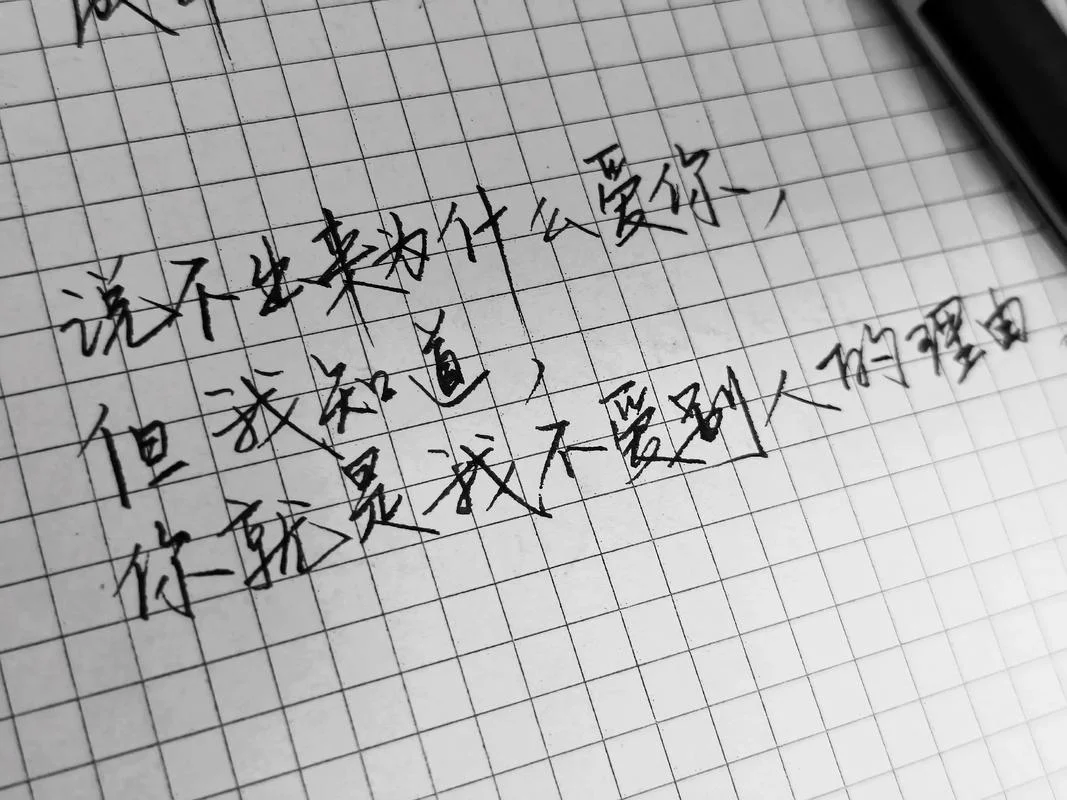 说不出来为什么爱你，
但我知道，
你就是我不爱别人的理由